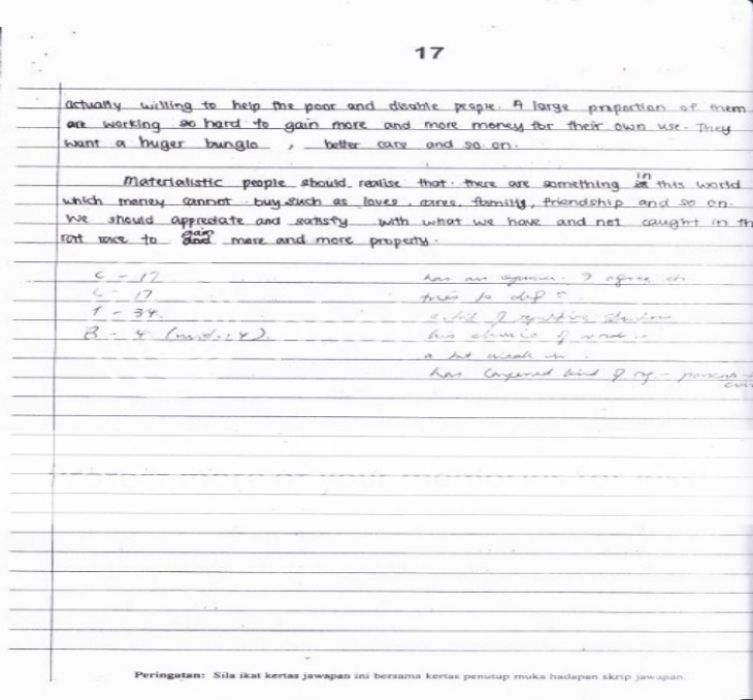 17
actually willing to help the poor and disable people. A large proportion of them
are working so hard to gain more and more money for their own use. They
want a huger bunglo , better cars and so on.
Materialistic people should realise that there are something in this world
which money cannot buy such as loves, cares, family, friendship and so on.
We should appreciate and satisfy with what we have and not caught in th
rat race to gain more and more property.
C - 17
L - 17
T - 34
B - 4 (mid: 4).
has an I agree
tries to
of repetitive
his choice of
a bit weak
has kind of
Peringatan: Sila ikat kertas jawapan ini bersama kertas penutup muka hadapan skrip jawapan.